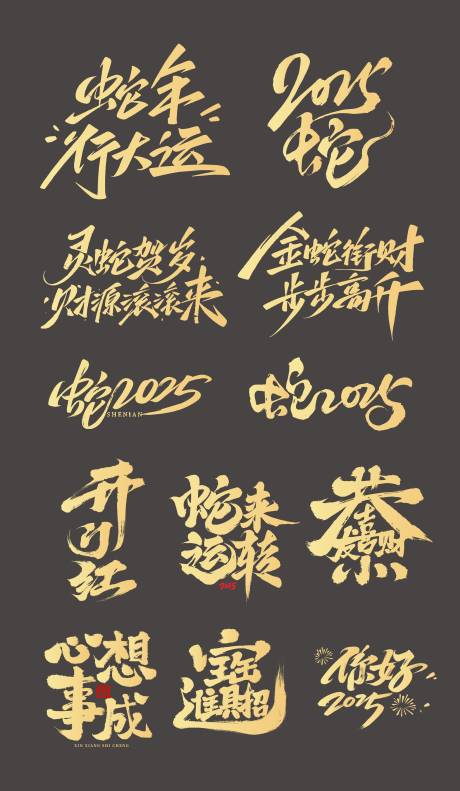 蛇年
行大运
2025
蛇
灵蛇贺岁
财源滚滚来
金蛇衔财
步步高升
蛇2025
SHENIAN
蛇2025
开
门
红
蛇来
运转
2025
恭喜
发财
心想
事成
XIN XIANG SHI CHENG
招财进宝
你好
2025